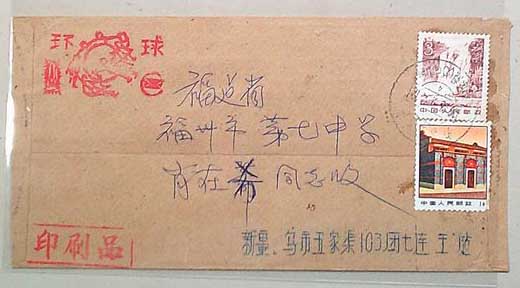 环球
3
中国人民邮政
福建省
福州市第七中学
中国人民邮政
同志收
印刷品
新疆、乌市五家渠103团七连